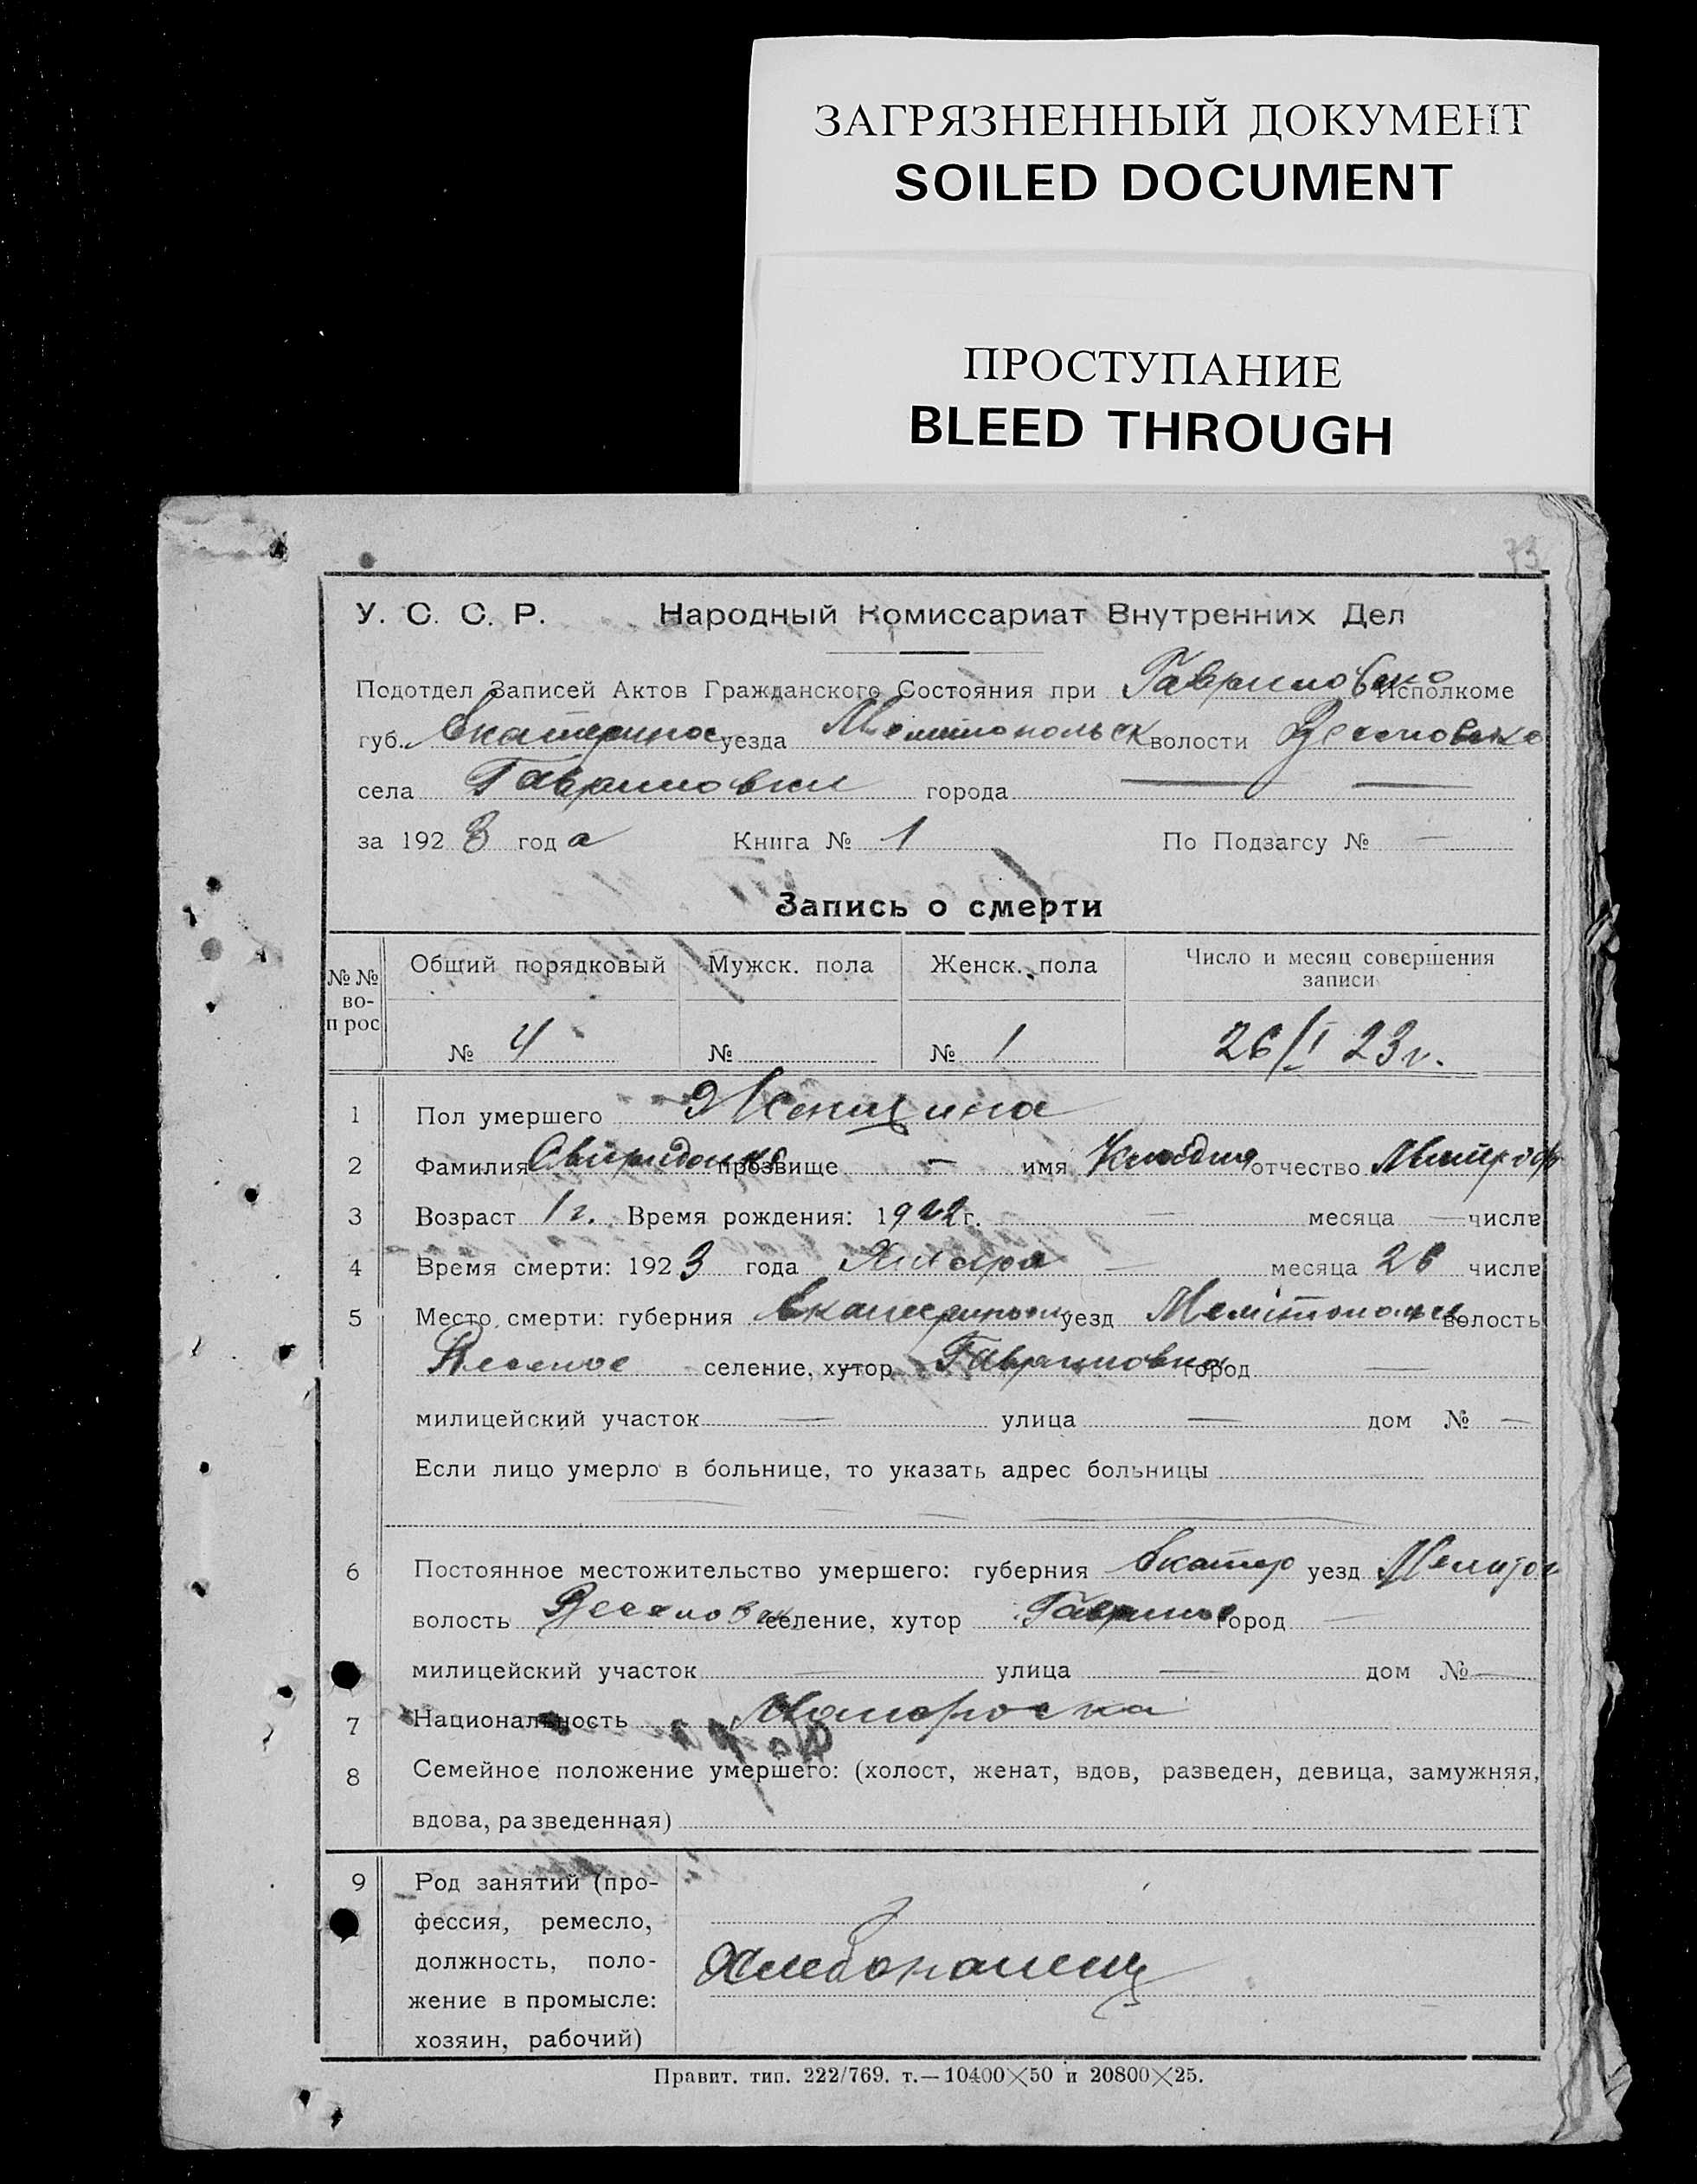 ЗАГРЯЗНЕННЫЙ ДОКУМЕНТ
SOILED DOCUMENT
ПРОСТУПАНИЕ
BLEED THROUGH
73
У. С. С. Р. Народный Комиссариат Внутренних Дел
Подотдел Записей Актов Гражданского Состояния при Гавриловско Исполкоме
губ. Екатеринос уезда Мелитопольск волости Веселовско
села Гавриловки города —
за 1923 года Книга № 1 По Подзагсу № —
Запись о смерти
№№ вопрос Общий порядковый Мужск. пола Женск. пола Число и месяц совершения записи
№ 4 № № 1 26/I 23 г.
1 Пол умершего Женщина
2 Фамилия Свириденко прозвище — имя Клавдия отчество Митроф
3 Возраст 1 г. Время рождения: 1922 г. — месяца — числа
4 Время смерти: 1923 года Января — месяца 26 числа
5 Место смерти: губерния Екатеринос уезд Мелитопольск волость
Веселое селение, хутор Гавриловка город —
милицейский участок — улица — дом № —
Если лицо умерло в больнице, то указать адрес больницы
6 Постоянное местожительство умершего: губерния Екатер уезд Мелитоп
волость Веселовск селение, хутор Гаврилов город —
милицейский участок — улица — дом № —
7 Национальность
8 Семейное положение умершего: (холост, женат, вдов, разведен, девица, замужняя,
вдова, разведенная)
9 Род занятий (про-
фессия, ремесло,
должность, поло- Хлебопашец
жение в промысле:
хозяин, рабочий)
Правит. тип. 222/769. т.—10400×50 и 20800×25.